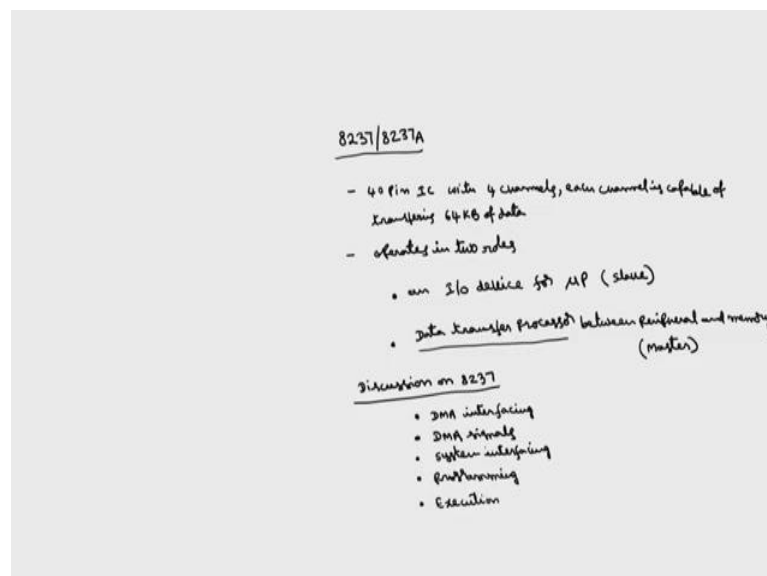 8237/8237A
- 40 Pin IC with 4 channels, each channel is capable of
transfering 64KB of data
- operates in two roles
• an I/O device for μP (slave)
• Data transfer Processor between Peripheral and memory
(Master)
Discussion on 8237
• DMA interfacing
• DMA signals
• System interfacing
• Programming
• Execution